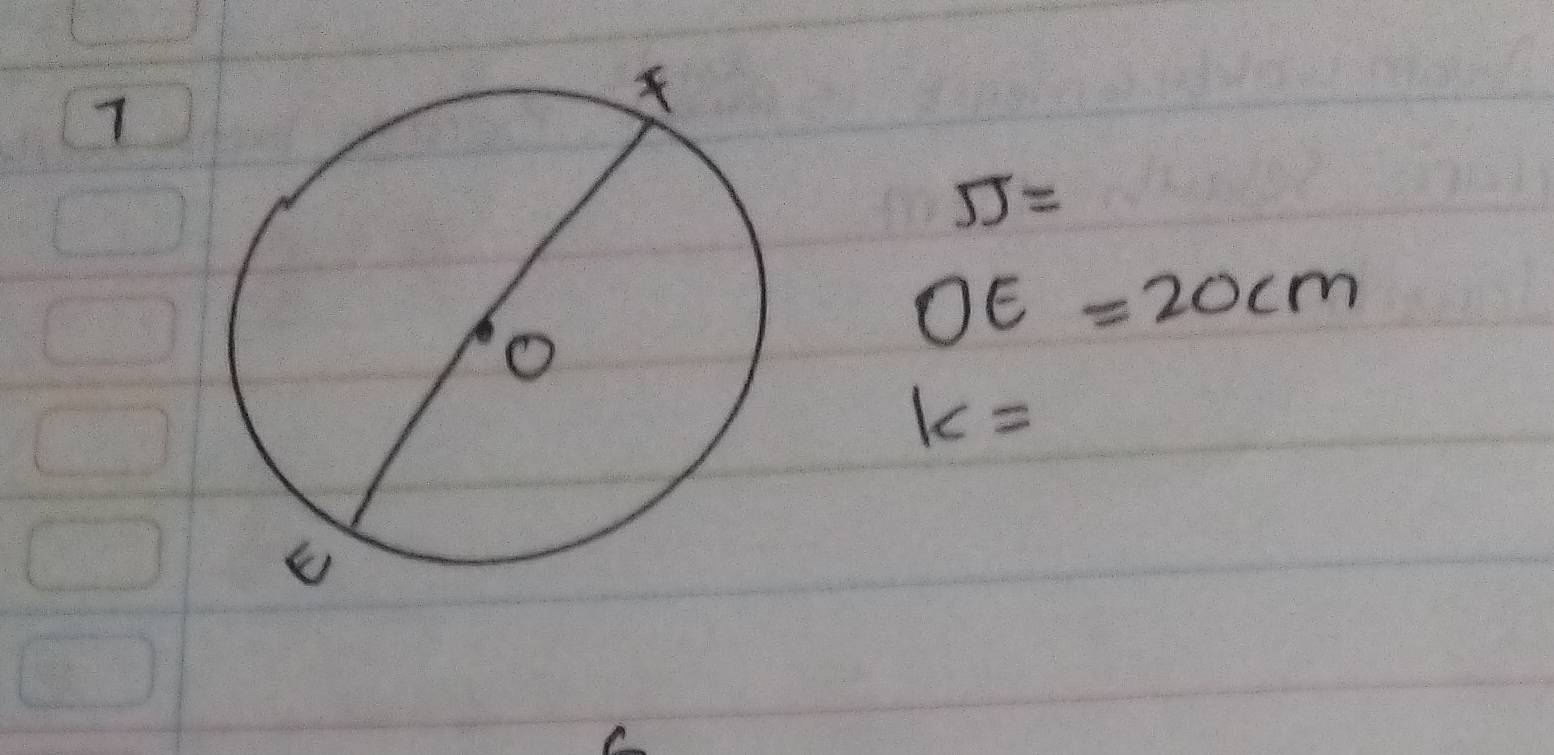 7
F
O
E
π =
OE = 20cm
K =